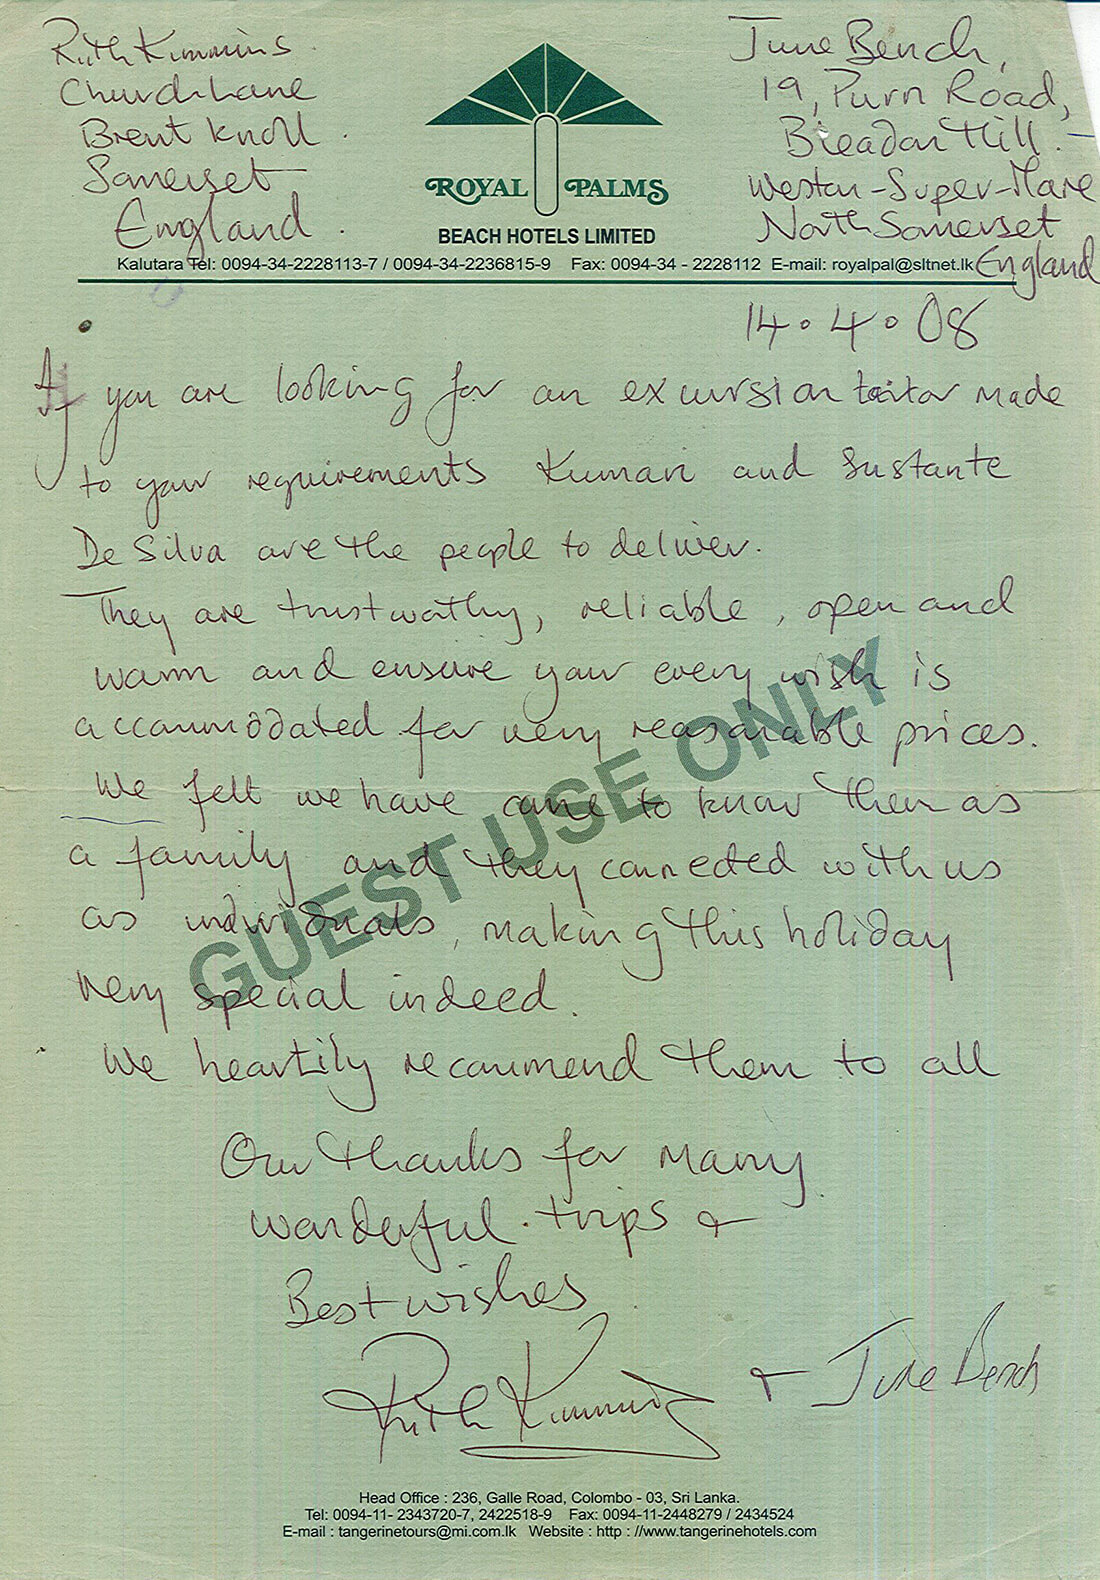 Ruth Kimmins
Church Lane
Brent Knoll
Somerset
England
June Bench,
19, Purn Road,
Bleadon Hill.
Weston-Super-Mare
North Somerset
England
ROYAL PALMS
BEACH HOTELS LIMITED
Kalutara Tel: 0094-34-2228113-7 / 0094-34-2236815-9 Fax: 0094-34 - 2228112 E-mail: royalpal@sltnet.lk
14.4.08
If you are looking for an excursion tailor made
to your requirements Kumari and Sustante
De Silva are the people to deliver.
They are trustworthy, reliable, open and
warm and ensure your every wish is
accommodated for very reasonable prices.
We felt we have come to know them as
a family and they connected with us
as individuals, making this holiday
very special indeed.
We heartily recommend them to all
Our thanks for many
wonderful trips &
Best wishes
Ruth Kimmins & June Bench
GUEST USE ONLY
Head Office : 236, Galle Road, Colombo - 03, Sri Lanka.
Tel: 0094-11- 2343720-7, 2422518-9 Fax: 0094-11-2448279 / 2434524
E-mail : tangerinetours@mi.com.lk Website : http : //www.tangerinehotels.com